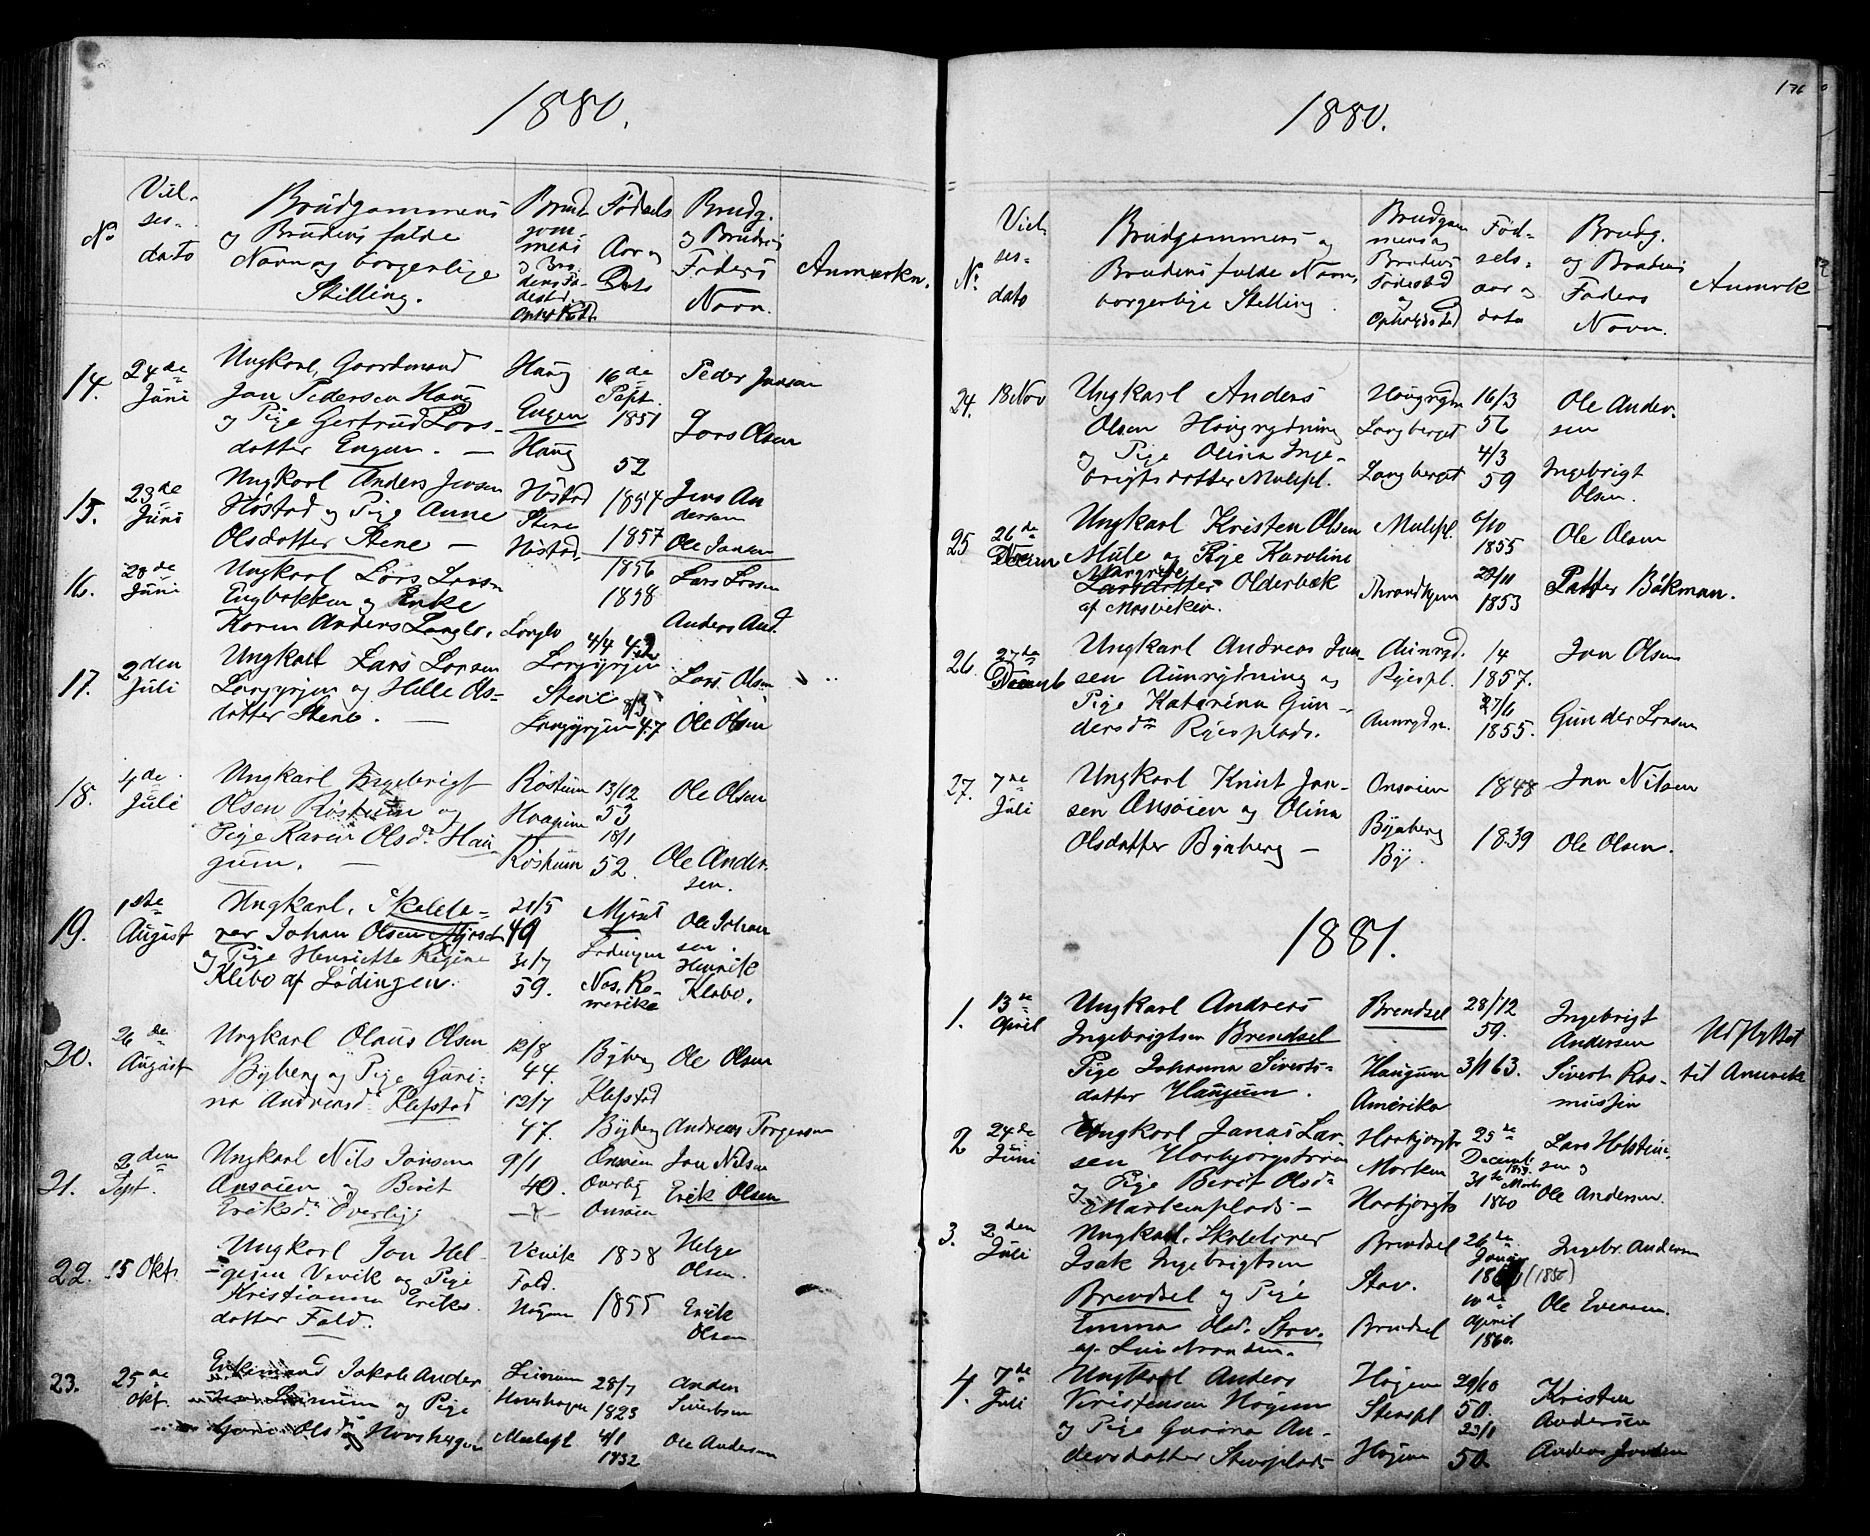 1880.
No
Viel-
ses-
dato
Brudgommens
og Brudens fulde
Navn og borgerlige
Stilling.
Brud
gom
mens
Fødsels
Aar og
Dato
Brudg.
og Brudens
Faders
Navn.
Anmærkn.
14.
24de
Juni
Ungkarl, Gaardmand
Jon Pedersen Haug
og Pige Gertrud Lars-
datter Engen. —
Haug
Engen
Haug
16de
Sept.
1851
52
Peder Jonsen
Lars Olsen
15.
23de
Juni
Ungkarl Anders Jensen
Høstad og Pige Anne
Olsdatter Stene —
Høstad
Stene
Høstad
1854
1857
Jens An
dersen
Ole Jonsen
16.
Juni
Ungkarl Lars Larsen
Engbakken og Enke
Karen Anders Langlo.
Langlo
1856
1838
Lars Larsen
Anders And.
17.
2den
Juli
Ungkarl Lars Larsen
og Helle Ols-
datter Stene. —
Stene
4/4 42
47
Lars Olsen
Ole Olsen
18.
4de
Juli
Ungkarl Ingebrigt
Olsen Røstum og
Pige Karen Olsdr Hau
gum. —
Røstum
Haugum
Røstum
13/12
53
18/1
52.
Ole Olsen
Ole Ander-
sen.
19.
1ste
August
Ungkarl, Skolelæ-
rer Johan Olsen Mjøset
og Pige Henriette Regine
Klebo af Lødingen.
21/5
49
31/7
59.
Mjøset
Lødingen
Nos. Ro-
merike
Ole Johan
sen.
Henrik
Klebo.
20.
26de
August
Ungkarl Olaus Olsen
Byberg og Pige Guri-
na Andreasd. Klefstad
12/8
44.
12/7
47.
Byberg
Klefstad
Byberg
Ole Olsen
Andreas Torgersen
21.
2den
Sept.
Ungkarl Nils Jonsen
Ansøien og Berit
Eriksdr Øverby
9/1
40.
Ansøien
Overby
Ansøien
Jon Nilsen
Erik Olsen
22.
15 Okt.
Ungkarl Jon Hel-
gesen Vevik og Pige
Kristianna Eriks-
datter Fald.
Vevik
Fald.
1838
1855
Helge
Olsen.
Erik
Olsen
23.
25de
Okt.
Enkemand Jakob Ander
Leinum og Pige
Guru Ols Hovshagen
Leinum
Hovshagen
Mulepl
28/7
1823
4/1
1832
Anders
Sivertsen
Ole Andersen
1880.
176
No.
Viel-
ses-
dato
Brudgommens og
Brudens fulde Navn,
borgerlige Stilling
Brudgom
mens og
Brudens
Fødested
og
Opholdssted
Fød-
sels-
aar og
dato
Brudg.
og Brudens
Faders
Navn.
Anmrk
24.
18 Nov
Ungkarl Anders
Olsen Haugrydning
og Pige Olina Inge-
brigtsdatter Mulepl.
Haugrydn
Langberget
Langberget
16/3
56
4/3
59
Ole Ander-
sen
Ingebrigt
Olsen.
25
26de
Ungkarl Kristen Olsen
Mule og Pige Karoline
Margrete
Larsdatter Olderbæk
af Mosviken.
Mulepl.
Throndhjem
6/10
1855
28/11
1853
Ole Olsen
Petter Bökman.
26.
27de
Decemb
Ungkarl Andreas Jon-
sen Aunrydning og
Pige Katarina Gun-
dersdr Ryesplads.
Aunryd.
Ryespl.
Aunrydn.
14
1857.
27/6
1855.
Jon Olsen
Gunder Larsen
27.
7de
Juli
Ungkarl Knut Jon-
sen Ansøien og Olina
Olsdatter Byaberg —
Ansøien
Byaberg
By.
1848
1839
Jon Nilsen
Ole Olsen.
1881.
1.
13de
April
Ungkarl Andreas
Ingebrigtsen Brendsel
Pige Johanna Siverts-
datter Haugum.
Brendsel
Haugum
Amerika
28/12
59.
3/1 63.
Ingebrigt
Andersen
Sivert Ras-
mussen
Udflyttet
til Amerik
2
24de
Juni
Ungkarl Jonas Lar-
sen
og Pige Berit Olsdr
Martenplads —
25de
Decemb
31te Marts
1860
Ole Andersen.
3.
2den
Juli
Ungkarl, Skolelærer
Isak Ingebrigtsen
Brendsel og Pige
Emma Olsd. Stav.
Brendsel
Stav.
Brendsel
26de
Januar
(1856)
10de
April
1860.
Ingebr. Andersen
Ole Evensen.
4.
7de
Juli
Ungkarl Anders
Kristensen Høgem
og Pige Gurina An-
dersdatter Stensplads
Høgem
Stenspl
Høgem
29/10
50.
23/1
50.
Kristen
Andersen
Anders